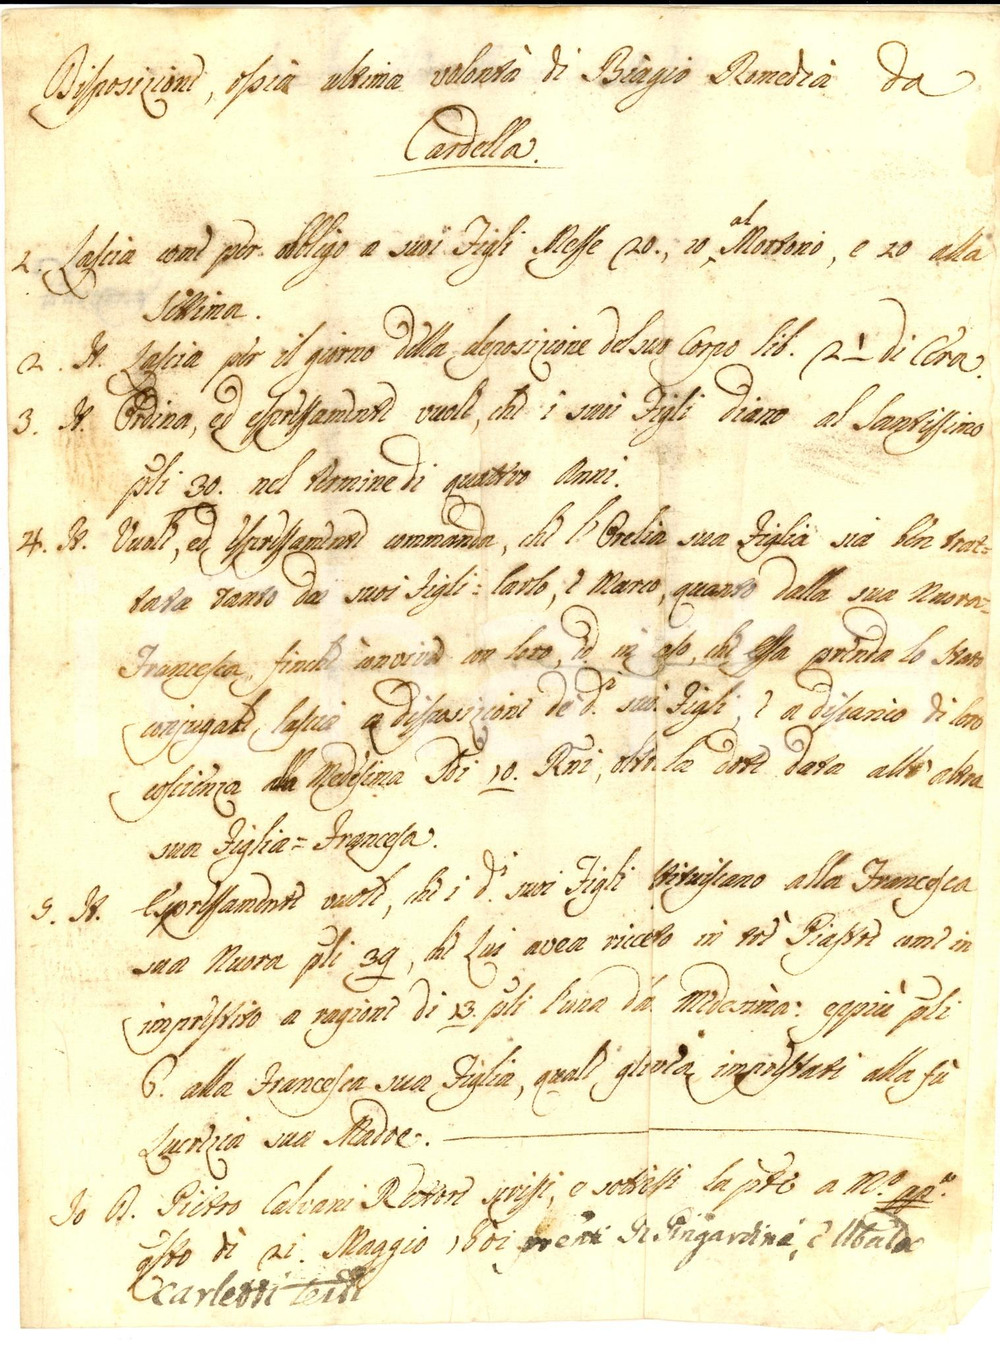 Disposizione, ossia ultima volontà di Biagio Remedia da
Cardella.
al
2. Lascia come per obbligo a suoi Figli Messe 20., 10 Mortorio, e 10 alla
settima.
2. It. Lascia per il giorno della deposizione del suo Corpo lib. 21 di Cera.
3. It. Ordina, ed espressamente vuole, che i suoi Figli diano al Santissimo
pli 30. nel termine di quattro Anni.
4. It. Vuole, ed espressamente commanda, che l'Orelia sua Figlia sia ben trat=
tata tanto da' suoi Figli= Carlo, e Marco, quanto dalla sua Nuora=
Francesca, finche convive con loro, ed in caso, che essa prenda lo stato
conjugale, lascia a disposizione de' di suoi Figli, e a discarico di loro
coscienza alla Medesima 10. oltre la dote data all' altra
sua Figlia= Francesca.
5. It. Espressamente vuole, che i di suoi Figli restituiscano alla Francesca
sua Nuora pli 39, che Lui avea riceuto in tre Piastre come in
imprestito a ragione di 13 pli l'una dà Medesima: eppiù pli
6. alla Francesca sua Figlia, quale glievea imprestati alla fù
Lucrezia sua Madre.
Io D. Pietro Calvani Rettore scrissi, e sottossi la pte a
qsto dì 21. Maggio 1801 prenti Pingardini, e Ubaldo
Scarletti testi